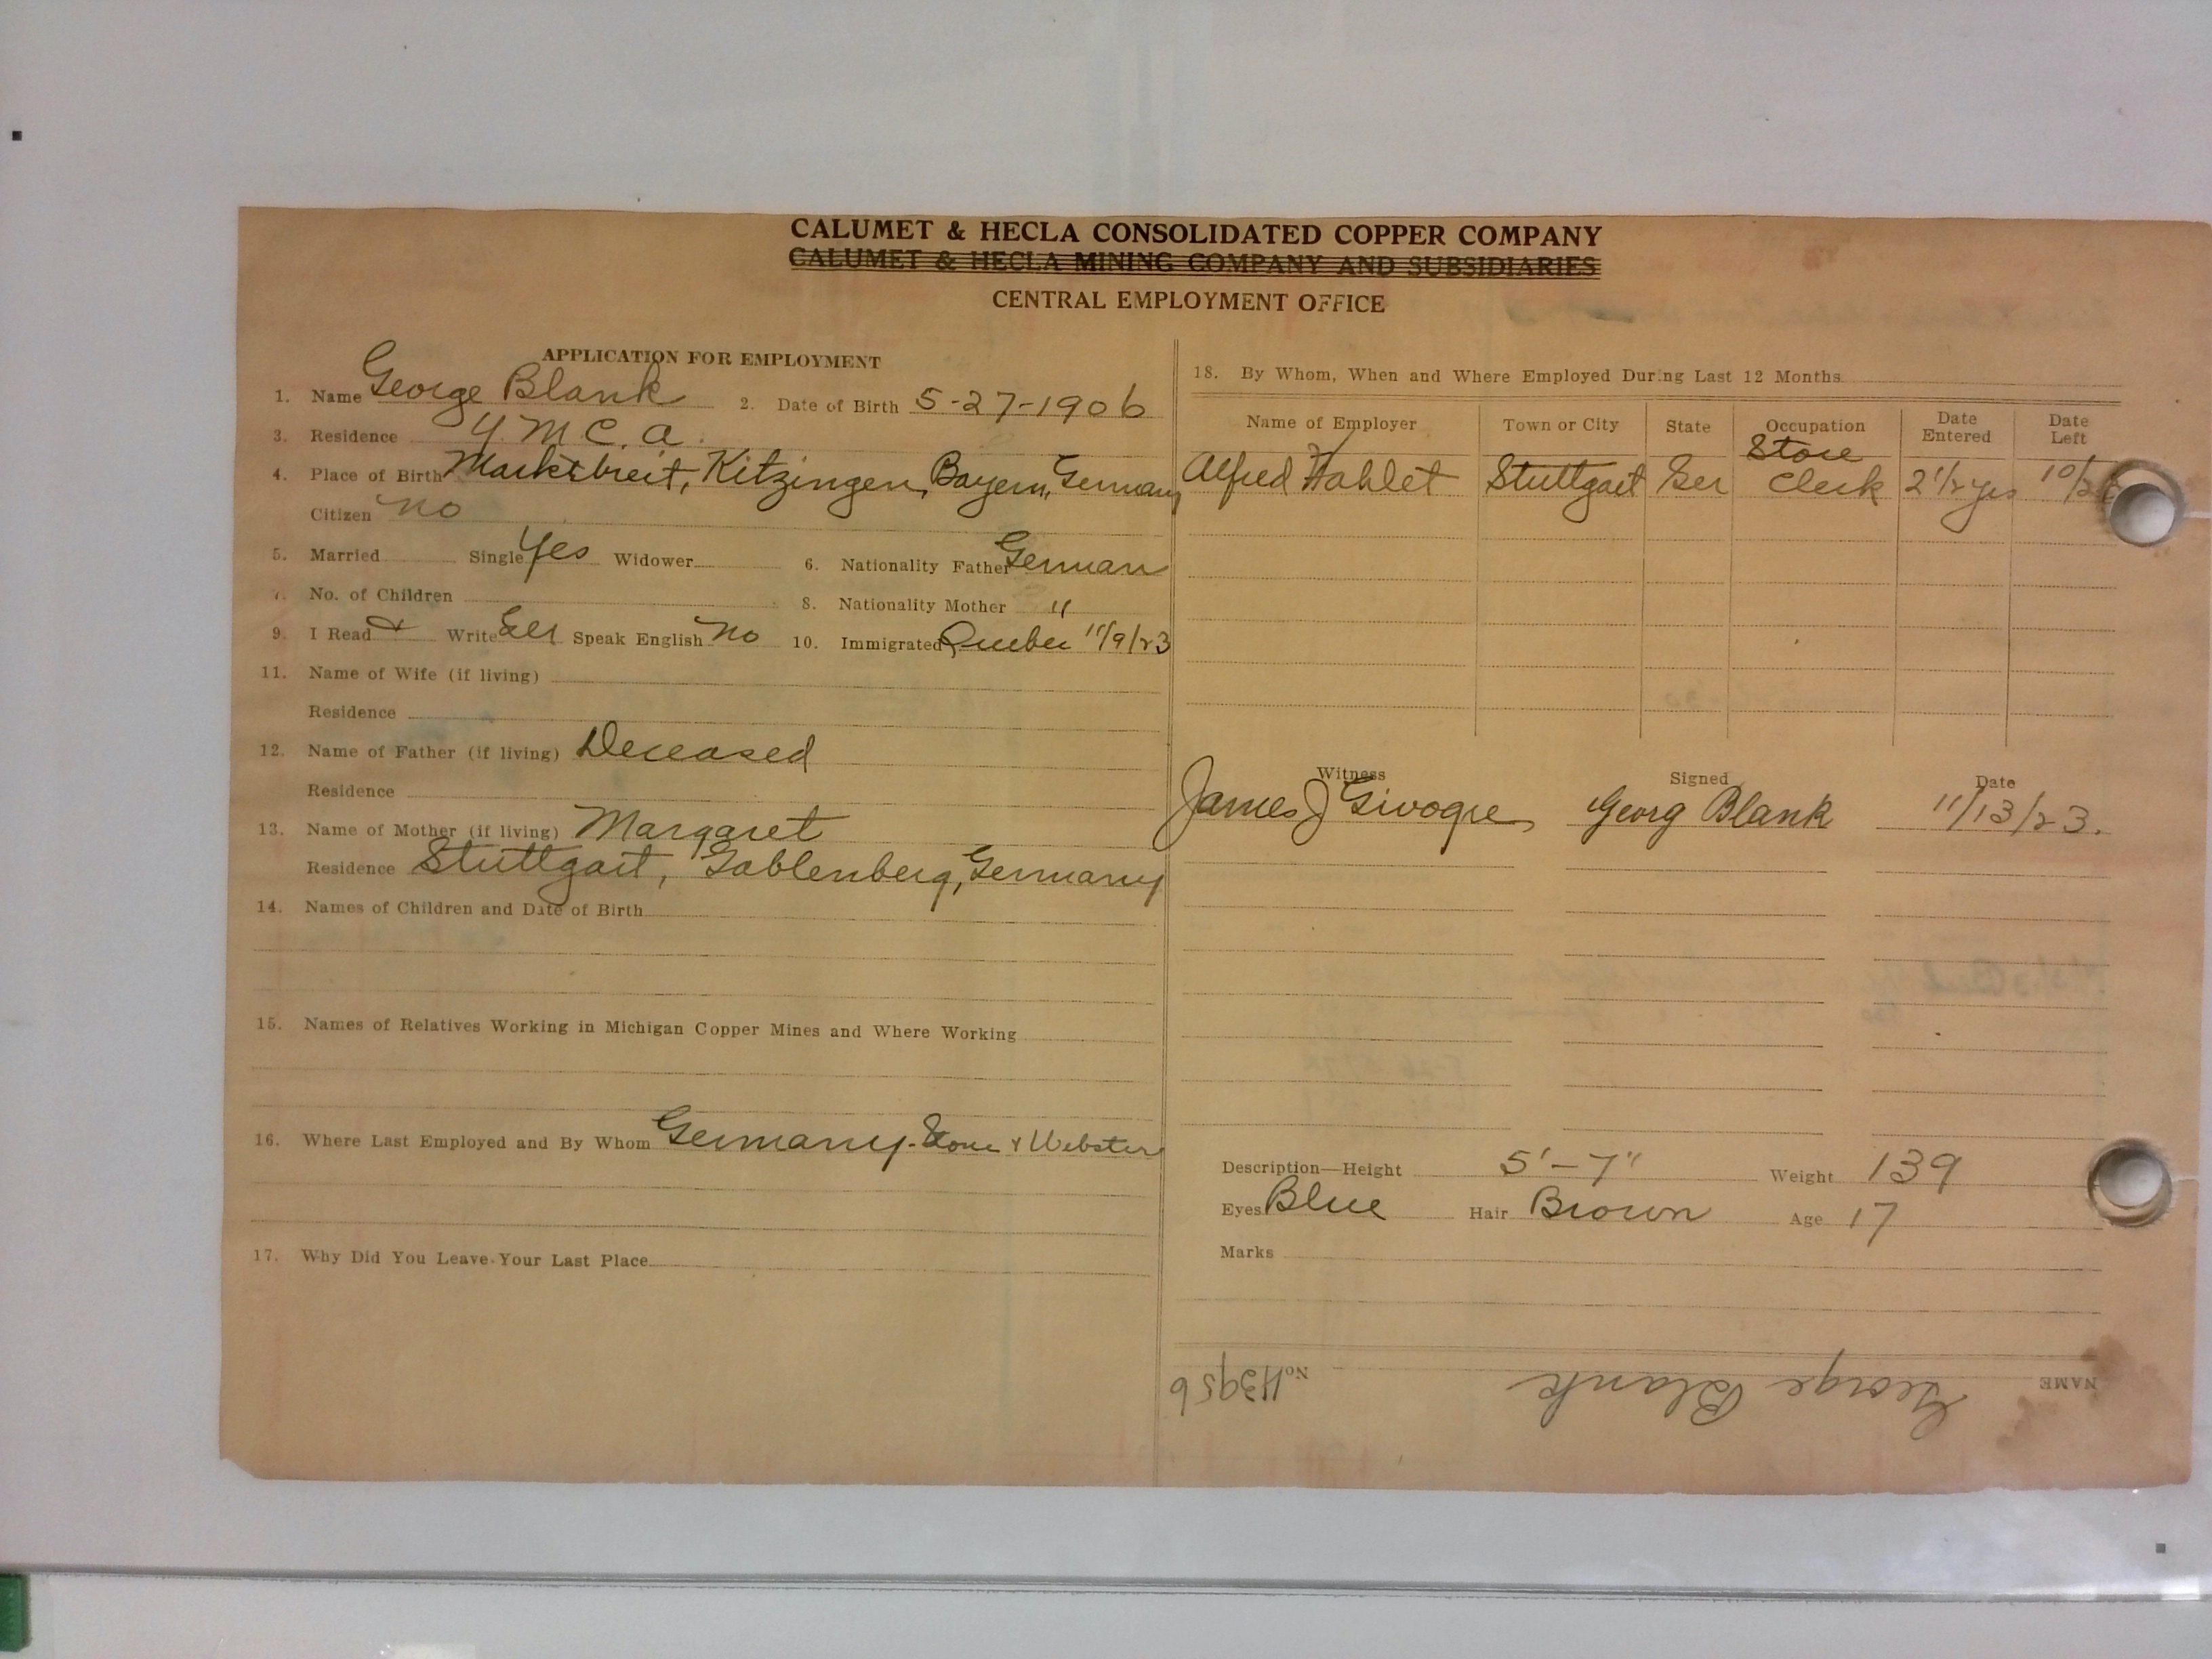 CALUMET & HECLA CONSOLIDATED COPPER COMPANY
CALUMET & HECLA MINING COMPANY AND SUBSIDIARIES
CENTRAL EMPLOYMENT OFFICE
APPLICATION FOR EMPLOYMENT
1. Name George Blank 2. Date of Birth 5-27-1906
3. Residence Y.M.C.A.
4. Place of Birth Marktbreit, Kitzingen, Bayern, Germany
Citizen No
5. Married Single Yes Widower 6. Nationality Father German
7. No. of Children 8. Nationality Mother "
9. I Read & Write Ger Speak English No 10. Immigrated Quebec 11/9/23
11. Name of Wife (if living)
Residence
12. Name of Father (if living) Deceased
Residence
13. Name of Mother (if living) Margaret
Residence Stuttgart, Gablenberg, Germany
14. Names of Children and Date of Birth
15. Names of Relatives Working in Michigan Copper Mines and Where Working
16. Where Last Employed and By Whom Germany. Stone & Webster
17. Why Did You Leave Your Last Place
18. By Whom, When and Where Employed During Last 12 Months
Name of Employer Town or City State Occupation Date Entered Date Left
Alfred Stuttgart Ger Store Clerk 2 1/2 yrs
Witness Signed Date
James J Georg Blank 11/13/23.
Description—Height 5'-7" Weight 139
Eyes Blue Hair Brown Age 17
Marks
NAME George Blank No. H3956